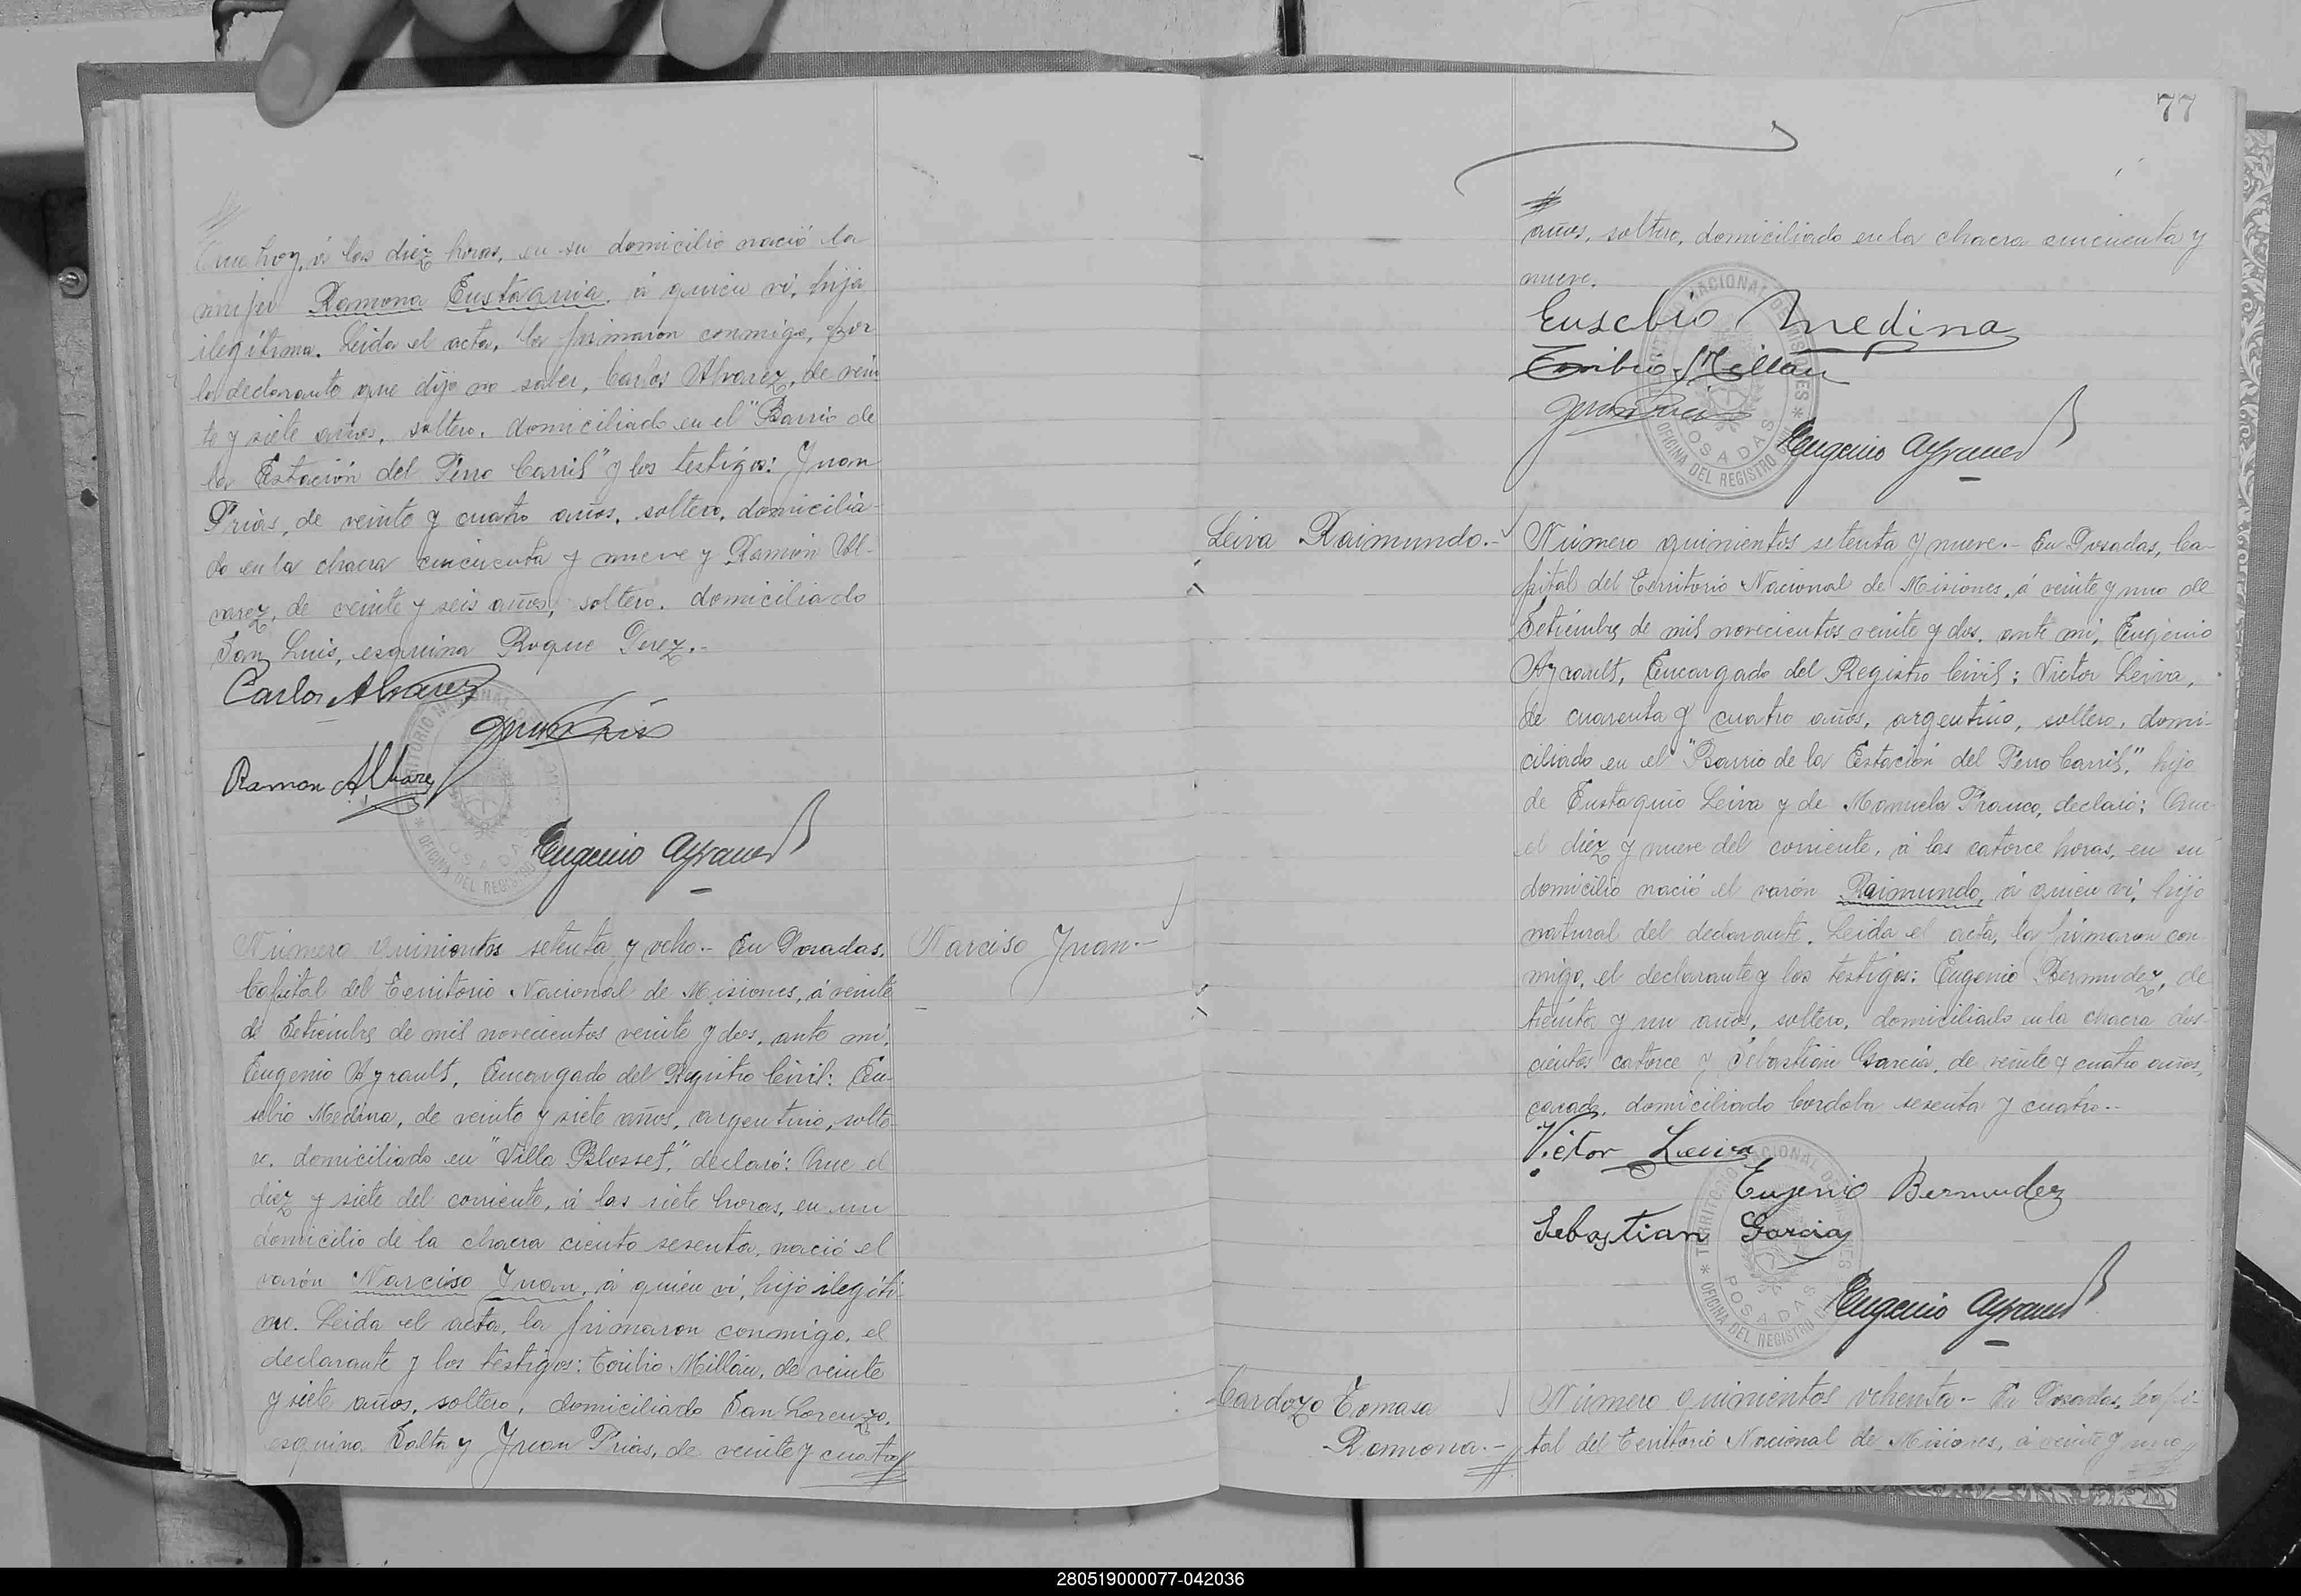 Que hoy, á las diez horas, en su domicilio nació la
mujer Ramona Eustaquia, á quien vi, hija
ilegítima. Leida el acta, la firmaron conmigo, por
la declarante que dijo no saber, Carlos Alvarez, de vein
te y siete años, soltero, domiciliado en el "Barrio de
la Estación del Ferro Carril" y los testigos: Juan
Frias, de veinte y cuatro años, soltero, domicilia-
do en la chacra cincuenta y nueve y Ramón Al-
varez, de veinte y seis años, soltero, domiciliado
San Luis, esquina Roque Perez.-
Carlos Alvarez
Juan Frias
Ramon Alvarez
Eugenio Ayrault
TERRITORIO NACIONAL DE MISIONES * OFICINA DEL REGISTRO
POSADAS
Número quinientos setenta y ocho.- En Posadas,
Capital del Territorio Nacional de Misiones, á veinte
de Setiembre de mil novecientos veinte y dos, ante mi,
Eugenio Ayrault, Encargado del Registro Civil: Eu-
sebio Medina, de veinte y siete años, argentino, solte-
ro, domiciliado en "Villa Blosset," declaró: Que el
diez y siete del corriente, á las siete horas, en un
domicilio de la chacra ciento sesenta, nació el
varón Narciso Juan, á quien vi, hijo ilegíti-
mo. Leida el acta, la firmaron conmigo, el
declarante y los testigos: Toribio Millán, de veinte
y siete años, soltero, domiciliado San Lorenzo,
esquina Salta y Juan Frias, de veinte y cuatro
Narciso Juan.-
77
años, soltero, domiciliado en la chacra cincuenta y
nueve.
Eusebio Medina
Toribio Millán
Juan Frias
Eugenio Ayrault
TERRITORIO NACIONAL DE MISIONES * OFICINA DEL REGISTRO
POSADAS
Leiva Raimundo.-
Número quinientos setenta y nueve.- En Posadas, Ca-
pital del Territorio Nacional de Misiones, á veinte y uno de
Setiembre de mil novecientos veinte y dos, ante mi, Eugenio
Ayrault, Encargado del Registro Civil: Victor Leiva,
de cuarenta y cuatro años, argentino, soltero, domi-
ciliado en el "Barrio de la Estación del Ferro Carril," hijo
de Eustaquio Leiva y de Manuela Franco, declaró: Que
el diez y nueve del corriente, á las catorce horas, en su
domicilio nació el varón Raimundo, á quien vi, hijo
natural del declarante. Leida el acta, la firmaron con-
migo, el declarante y los testigos: Eugenio Bermudez, de
treinta y un años, soltero, domiciliado en la chacra dos-
cientos catorce y Sebastián Garcia, de veinte y cuatro años,
casado, domiciliado Cordoba sesenta y cuatro.-
Victor Leiva
Eugenio Bermudez
Sebastian Garcia
Eugenio Ayrault
TERRITORIO NACIONAL DE MISIONES * OFICINA DEL REGISTRO
POSADAS
Cardozo Tomasa
Ramona.-
Número quinientos ochenta.- En Posadas, Capi-
tal del Territorio Nacional de Misiones, á veinte y uno
280519000077-042036